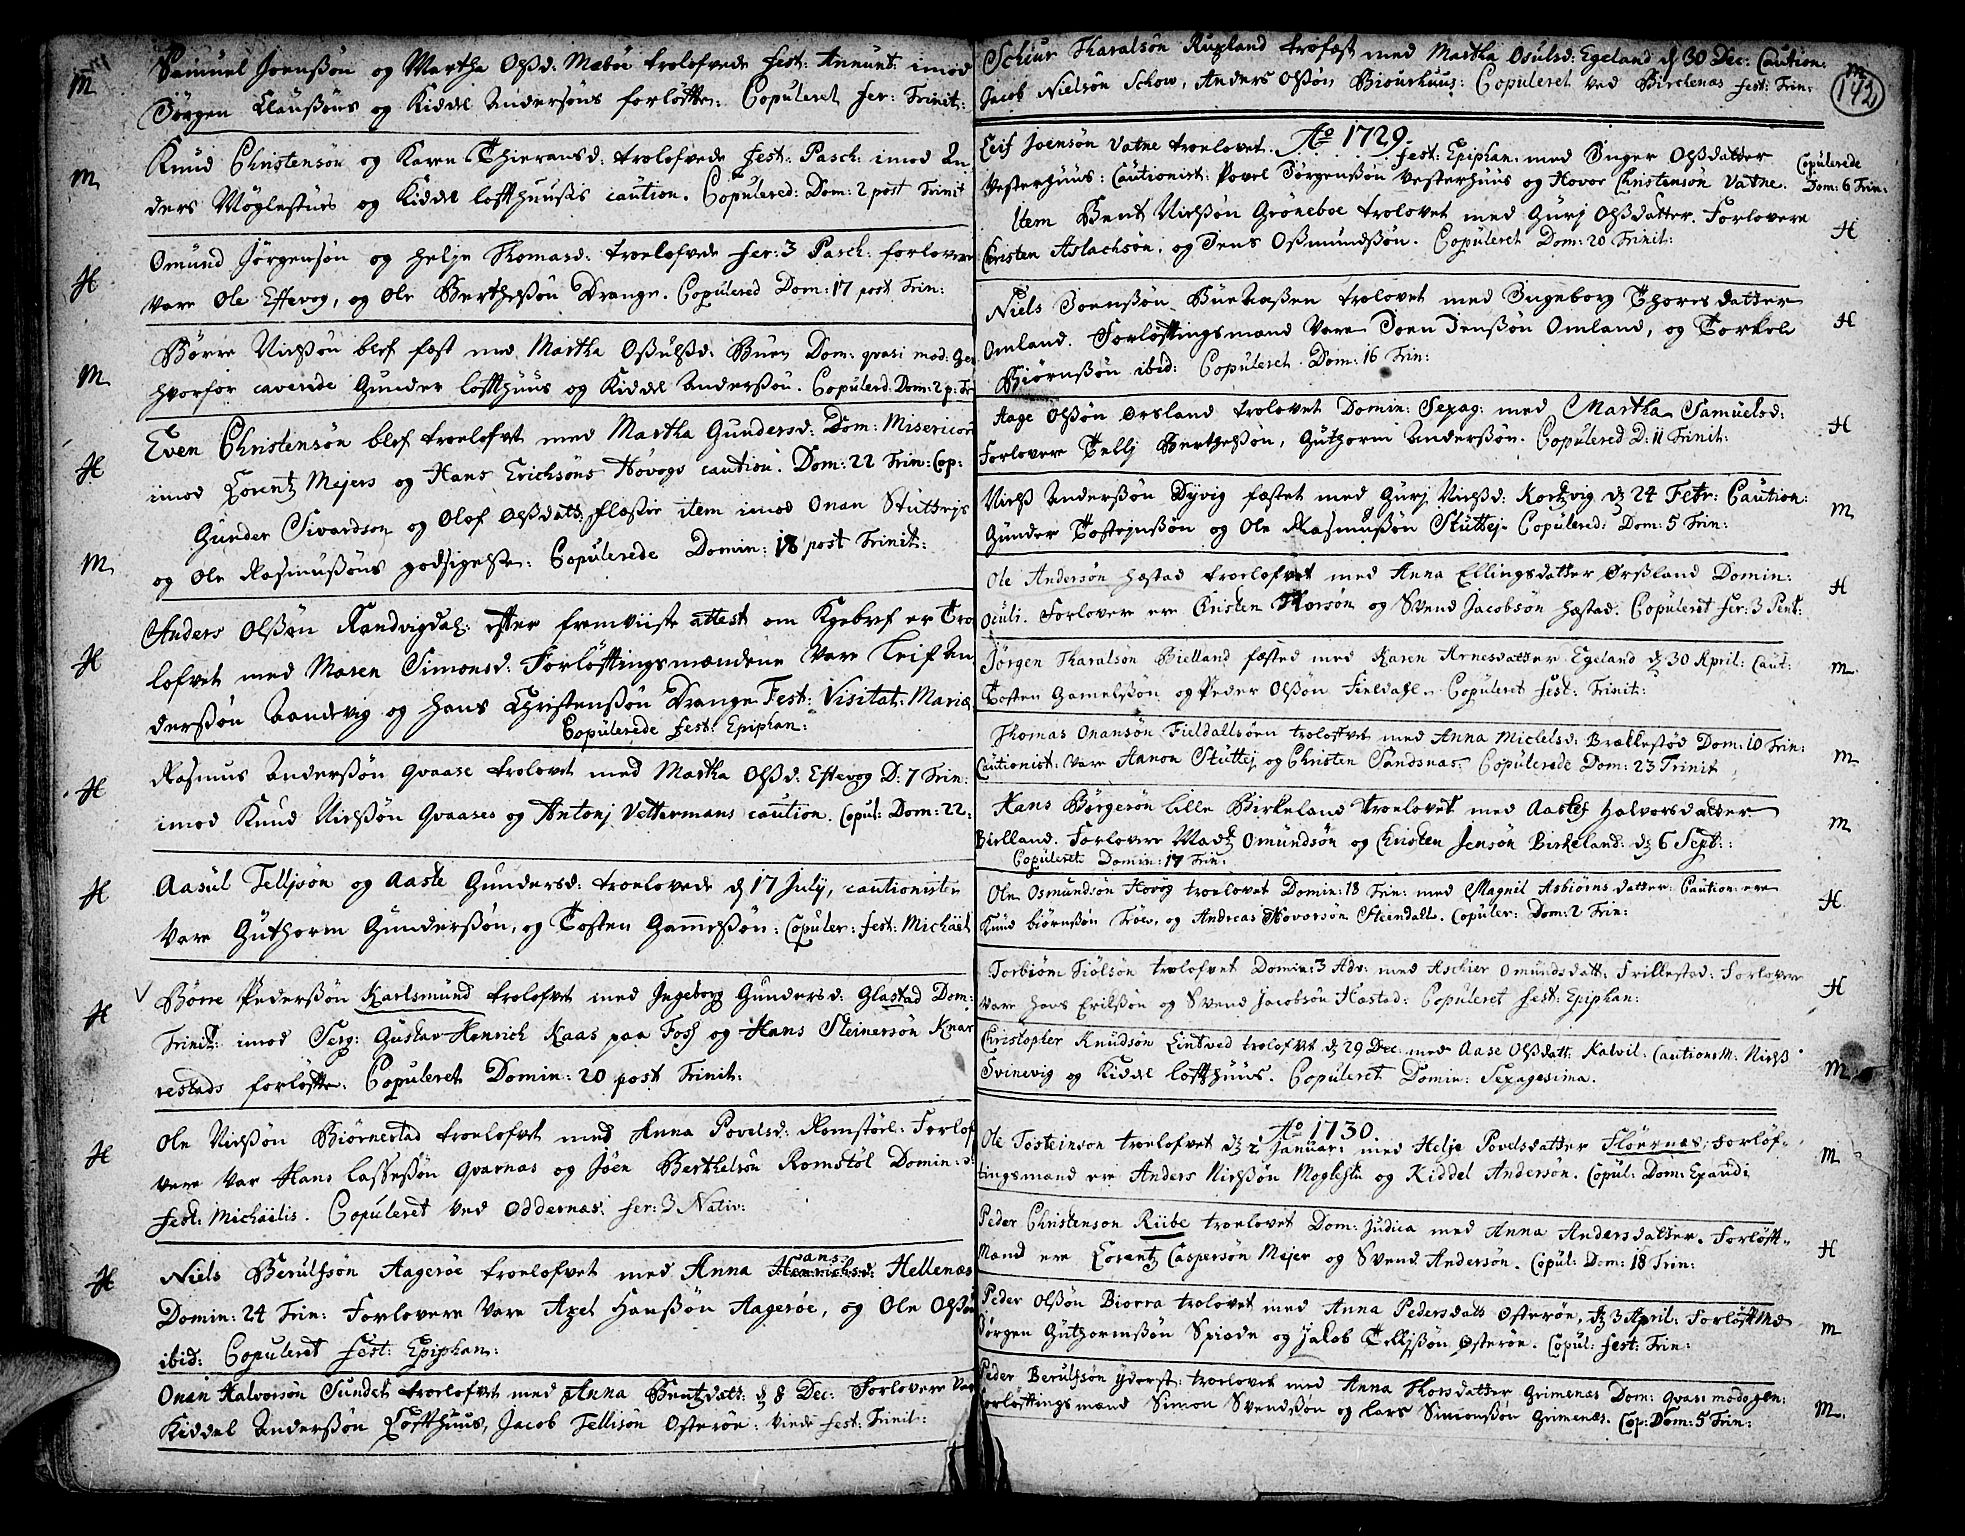 M
Samuel Joensøn og Martha Olßd: Mæbøe trolofvede fest: Annunt: imod
Jørgen Clausøns og Kiddel Andersøns forløfte. Copuleret fer: Trinit:
M
Knud Christensøn og Karen Thieransd: trolofvede fest: Pasch: imod An
ders Møglestues og Kiddel loffthuusis caution. Copulered: Dom: 2 post Trinit
H
Omund Jørgensøn og Helje Thomasd: troelofvede fer: 3 Pasch: forlovere
vare Ole Effevog, og Ole Bertheßøn Drange. Copulered Dom: 17 post Trin:
M
Børre Nielßøn blef fæst med Martha Oßulßd: Buen Dom: qvasi mod: Gen
hvorfor caverede Gunder loffthuus og Kiddel Anderßøn. Copulerd. Dom: 2 p: Tri
H
Even Christensøn blef troelofvet med Martha Gundersd: Dom: Misericor
imod Lorentz Mejers og Hans Erichsøns Høvogs caution. Dom: 22 Trin: Cop:
M
Gunder Sivardson og Olof Olßdatt: flaßøe item imod Onan Stuttejs
og Ole Rasmußøns godsigelse: Copulerede Domin: 18 post Trinit:
H
Anders Olßøn Randvigdal: efter fremviiste attest om Kgebref er Tro
lofvet med Maren Simonsd: Forløftingsmændene vare Leif An
derßøn Aandevig og Hans Christenßøn Drange Fest: Visitat: Mariæ
Copulerede fest: Epiphan:
H
Rasmus Anderßøn Qvaase trolovet med Martha Olßd: Effevog D: 7 Trin:
imod Knud Nielßøn Qvaases og Antonj Vettermans caution. Copul: Dom: 22:
H
Aasul Telljsøn og Aaste Gundersd: troelovede d 17 July, cautionister
vare Guthorm Gunderßøn, og Tosten Gam̄elßøn: Copuler: fest: Michäel
H
Børre Pederßøn Karlsmund trolofvet med Ingeborg Gundersd: Glastad Dom:
Trinit: imod Serg: Gustav Henrich Kaas paa Foss og Hans Steinersøn Knar
restads forløffte: Copuleret Domin: 20 post Trinit:
H
Ole Nielßøn Biørnestad troelofvet med Anna Povelsd: Romstøel: Forlof
vere var Hans Lasseßøn Qvarnæs og Joen Berthelsøn Romstøl Domin:
fest: Michäelis. Copuleret ved Oddernæs fer: 3 Nativ:
H
Niels Berulfsøn Aagerøe troelofvet med Anna Hansd: Hellenæs
Domin: 24 Trin: Forlovere vare Axel Hanßøn Aagerøe, og Ole Olßøn
ibid: Copuleret fest: Epiphan:
Onan Halvorsøn Sundet troelofvet med Anna Bentzdatt: d 8 Dec: Forlovere var
Kiddel Anderßøn Loffthuus, Jacob Tellisøn Osterøe: viede fest: Trinit:
142
M
Tharalsøn Rugland trofæst med Martha Osulsd: Egeland d 30 Dec: Caution:
Jacob Nielsøn Schow, Anders Olßøn Biourhuus: Copuleret ved Birckenæs fest: Trin:
Ao 1729.
Leif Joensøn Vatne troelovet fest: Epiphan. med Inger Olßdatter
Vesterhuus: Cautionist: Povel Jørgensøn Vesterhuus og Hovor Christensøn Vatne. Copulerede Dom: 6 Trin:
Item Bent Nielßøn Grøneboe trolovet med Gurj Olßdatter. Forlovere
Cristen Aslachsøn, og Jens Oßmundßøn. Copuleret Dom: 20 Trinit:
H
Niels Joenßøn trolovet med Ingeborg Thoresdatter
Omland. Forløftingsmænd vare Joen Jenßøn Omland, og Torkel
Biørnßøn ibid: Copuleret Dom: 16 Trin:
H
Aage Olßøn Ørsland trolovet Domin: Sexag: med Martha Samuelsd:
Forlovere Tellj Bertheßøn, Guthorm Anderßøn. Copulered D: 11 Trinit:
H
Nielß Anderßøn Dyvig fæstet med Gurj Nielßd: Kortzvig d 24 Febr: Caution:
Gunder Tostejnßøn og Ole Rasmußøn Stuttej. Copulered: Dom: 5 Trin:
M
Ole Andersøn Hæstad troelofvet med Anna Ellingsdatter Ørßland Domin:
Oculi. Forlovere ere Christen Thorsøn og Svend Jacobsøn Hæstad. Copuleret fer: 3 Pent:
H
Jørgen Tharalsøn Bielland fæsted med Karen Arnesdatter Egeland d 30 April: Caut:
Tosten Gamelßøn og Peder Olßøn fieldahl. Copuleret fest: Trinit:
M
Thomas Onansøn Fieldallsøen troloffvet med Anna Michelsd: Brækkestød Dom: 10 Trin:
Cautionist: vare Aanon Stuttej og Christen Sandsnæs. Copulerede Dom: 23 Trinit
M
Hans Børgesøn Lille Birkeland troelovet med Aaste Halvorsdatter
Bielland. Forlovere Madtz Omundsøn og Christen Jensøn Birkeland: d 6 Sept:
Copulerede Domin: 17 Trin:
M
Ole Osmundsøn Hovog troelovet Domin: 13 Trin: med Magnil Asbiørnsdatter: Caution: ere
Knud biørnßøn Trøe, og Andreas Hovorsøn Steendall. Copuler: Dom: 2 Trin:
H
Torbiørn Tiølsøn trolofvet Domin: 3 Adv: med Aschier Omundsdatt: Trillestad: Forlovere
vare Hans Erilßøn og Svend Jacobsøn Hæstad: Copuleret fest: Epiphan:
H
Christopher Knudsøn Lintved trolofvet d 29 Dec: med Aase Olßdatt: Kalvil: Cautions M: Nielß
Svinevig og Kiddel loffthuus. Copuleret Domin: Sexagesima.
M
Ao 1730.
Ole Tosteinsøn troelofvet d 2 Januar: med Helje Povelsdatter Fløernæs, forløf-
tingsmænd ere Anders Nielßøn Moglestu og Kiddel Andersøn. Copul: Dom: Exaudi
M
Peder Christensøn Riibe troelovet Dom: Judica med Anna Andersdatter. Forløft-
Mænd ere Lorentz Caspersøn Mejer og Svend Andersøn. Copul: Dom: 18 Trin:
H
Peder Olßøn Biorra trolovet med Anna Pedersdatt: Osterøe, d 3 April: Forløft Md
Jørgen Guthormßøn Spiode og Jakob Tellisßøn Østerøe. Copul: fest: Trin:
M
Peder Berulfsøn yderst: troelovet med Anna Thorsdatter Grimenæs Dom: qvasi modogen:
Forløftingsmænd Simon Svendßøn og Lars Simonßøn Grimenæs. Cop: Dom: 5 Trin:
M.